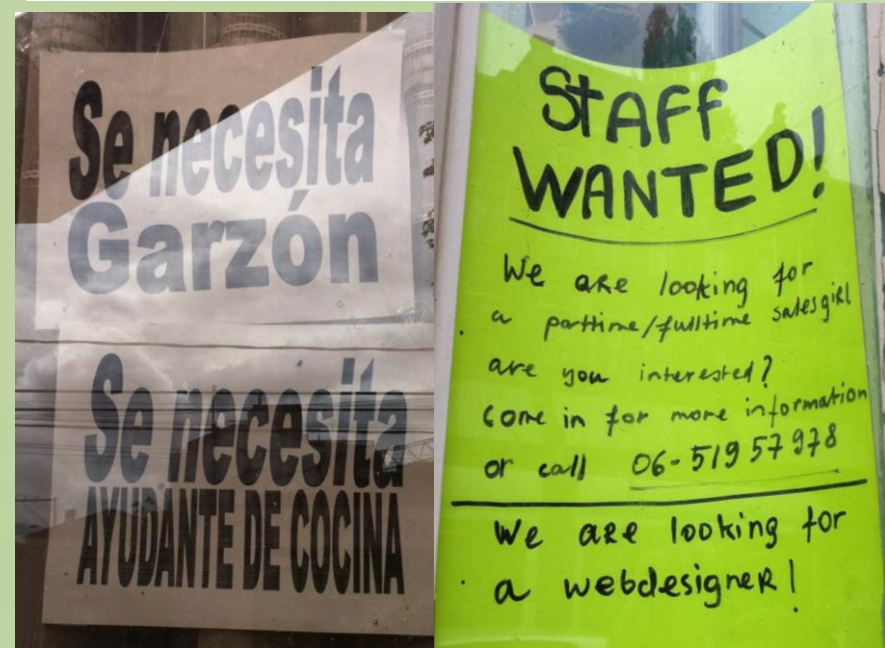 Se necesita
Garzón
Se necesita
AYUDANTE DE COCINA
StAFF
WANTED!
We are looking for
a parttime/fulltime salesgirl
are you interested?
come in for more information
or call 06-519 57 978
We are looking for
a webdesigner!